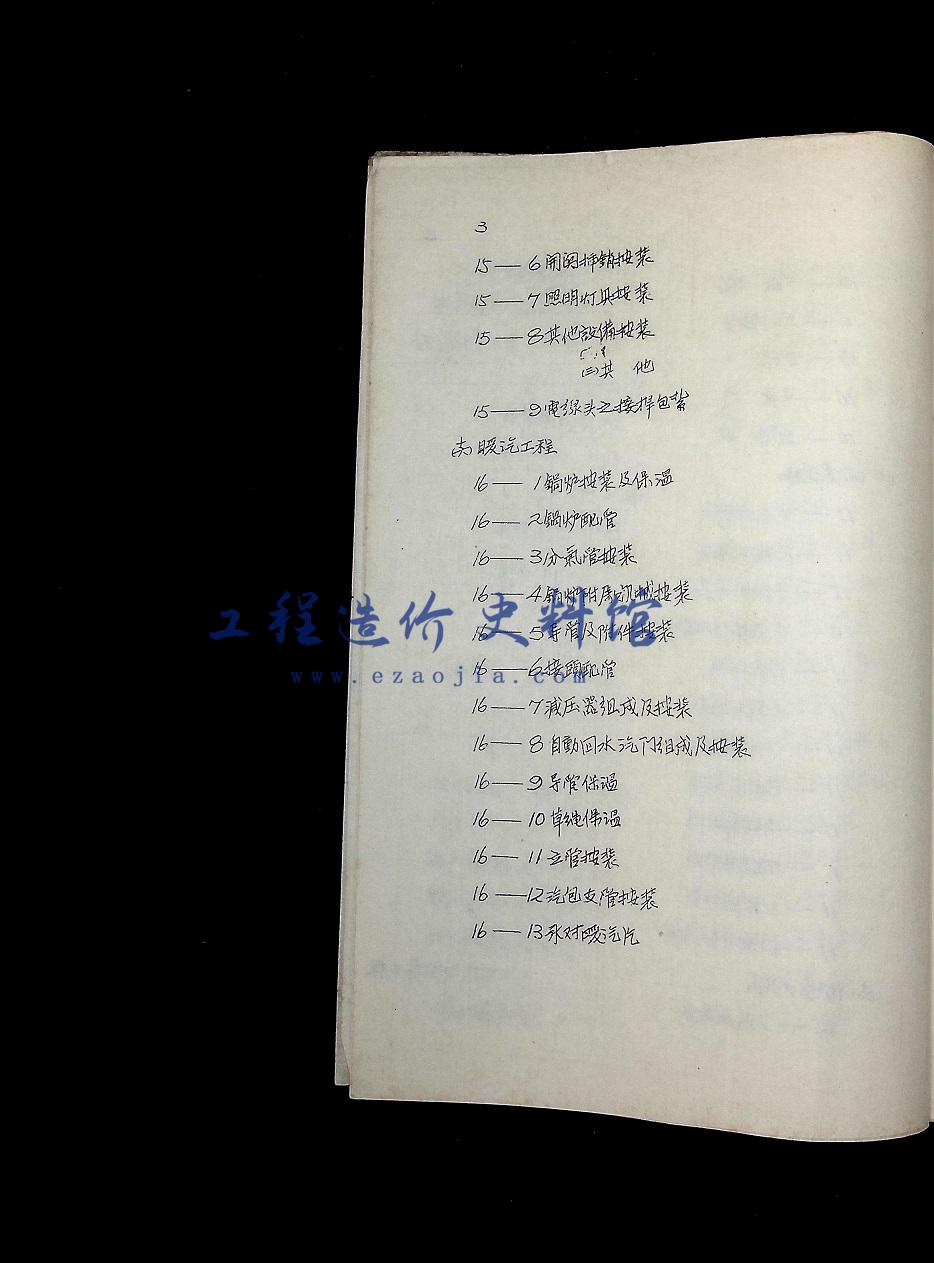 3
15—6開関挿銷按装
15—7照明灯具按装
15—8其他設備按装
(三)其 他
15—9電線头之接焊包紮
(六)暖汽工程
16—1鍋炉按装及保温
16—2鍋炉配管
16—3分氣管按装
16—4鍋炉附属机械按装
工程造价史料馆
16—5导管及附件按装
16—6接頭配管
www.ezaojia.com
16—7减压器组成及按装
16—8自動回水汽门组成及按装
16—9导管保温
16—10草绳保温
16—11立管按装
16—12汽包支管按装
16—13 对暖汽片